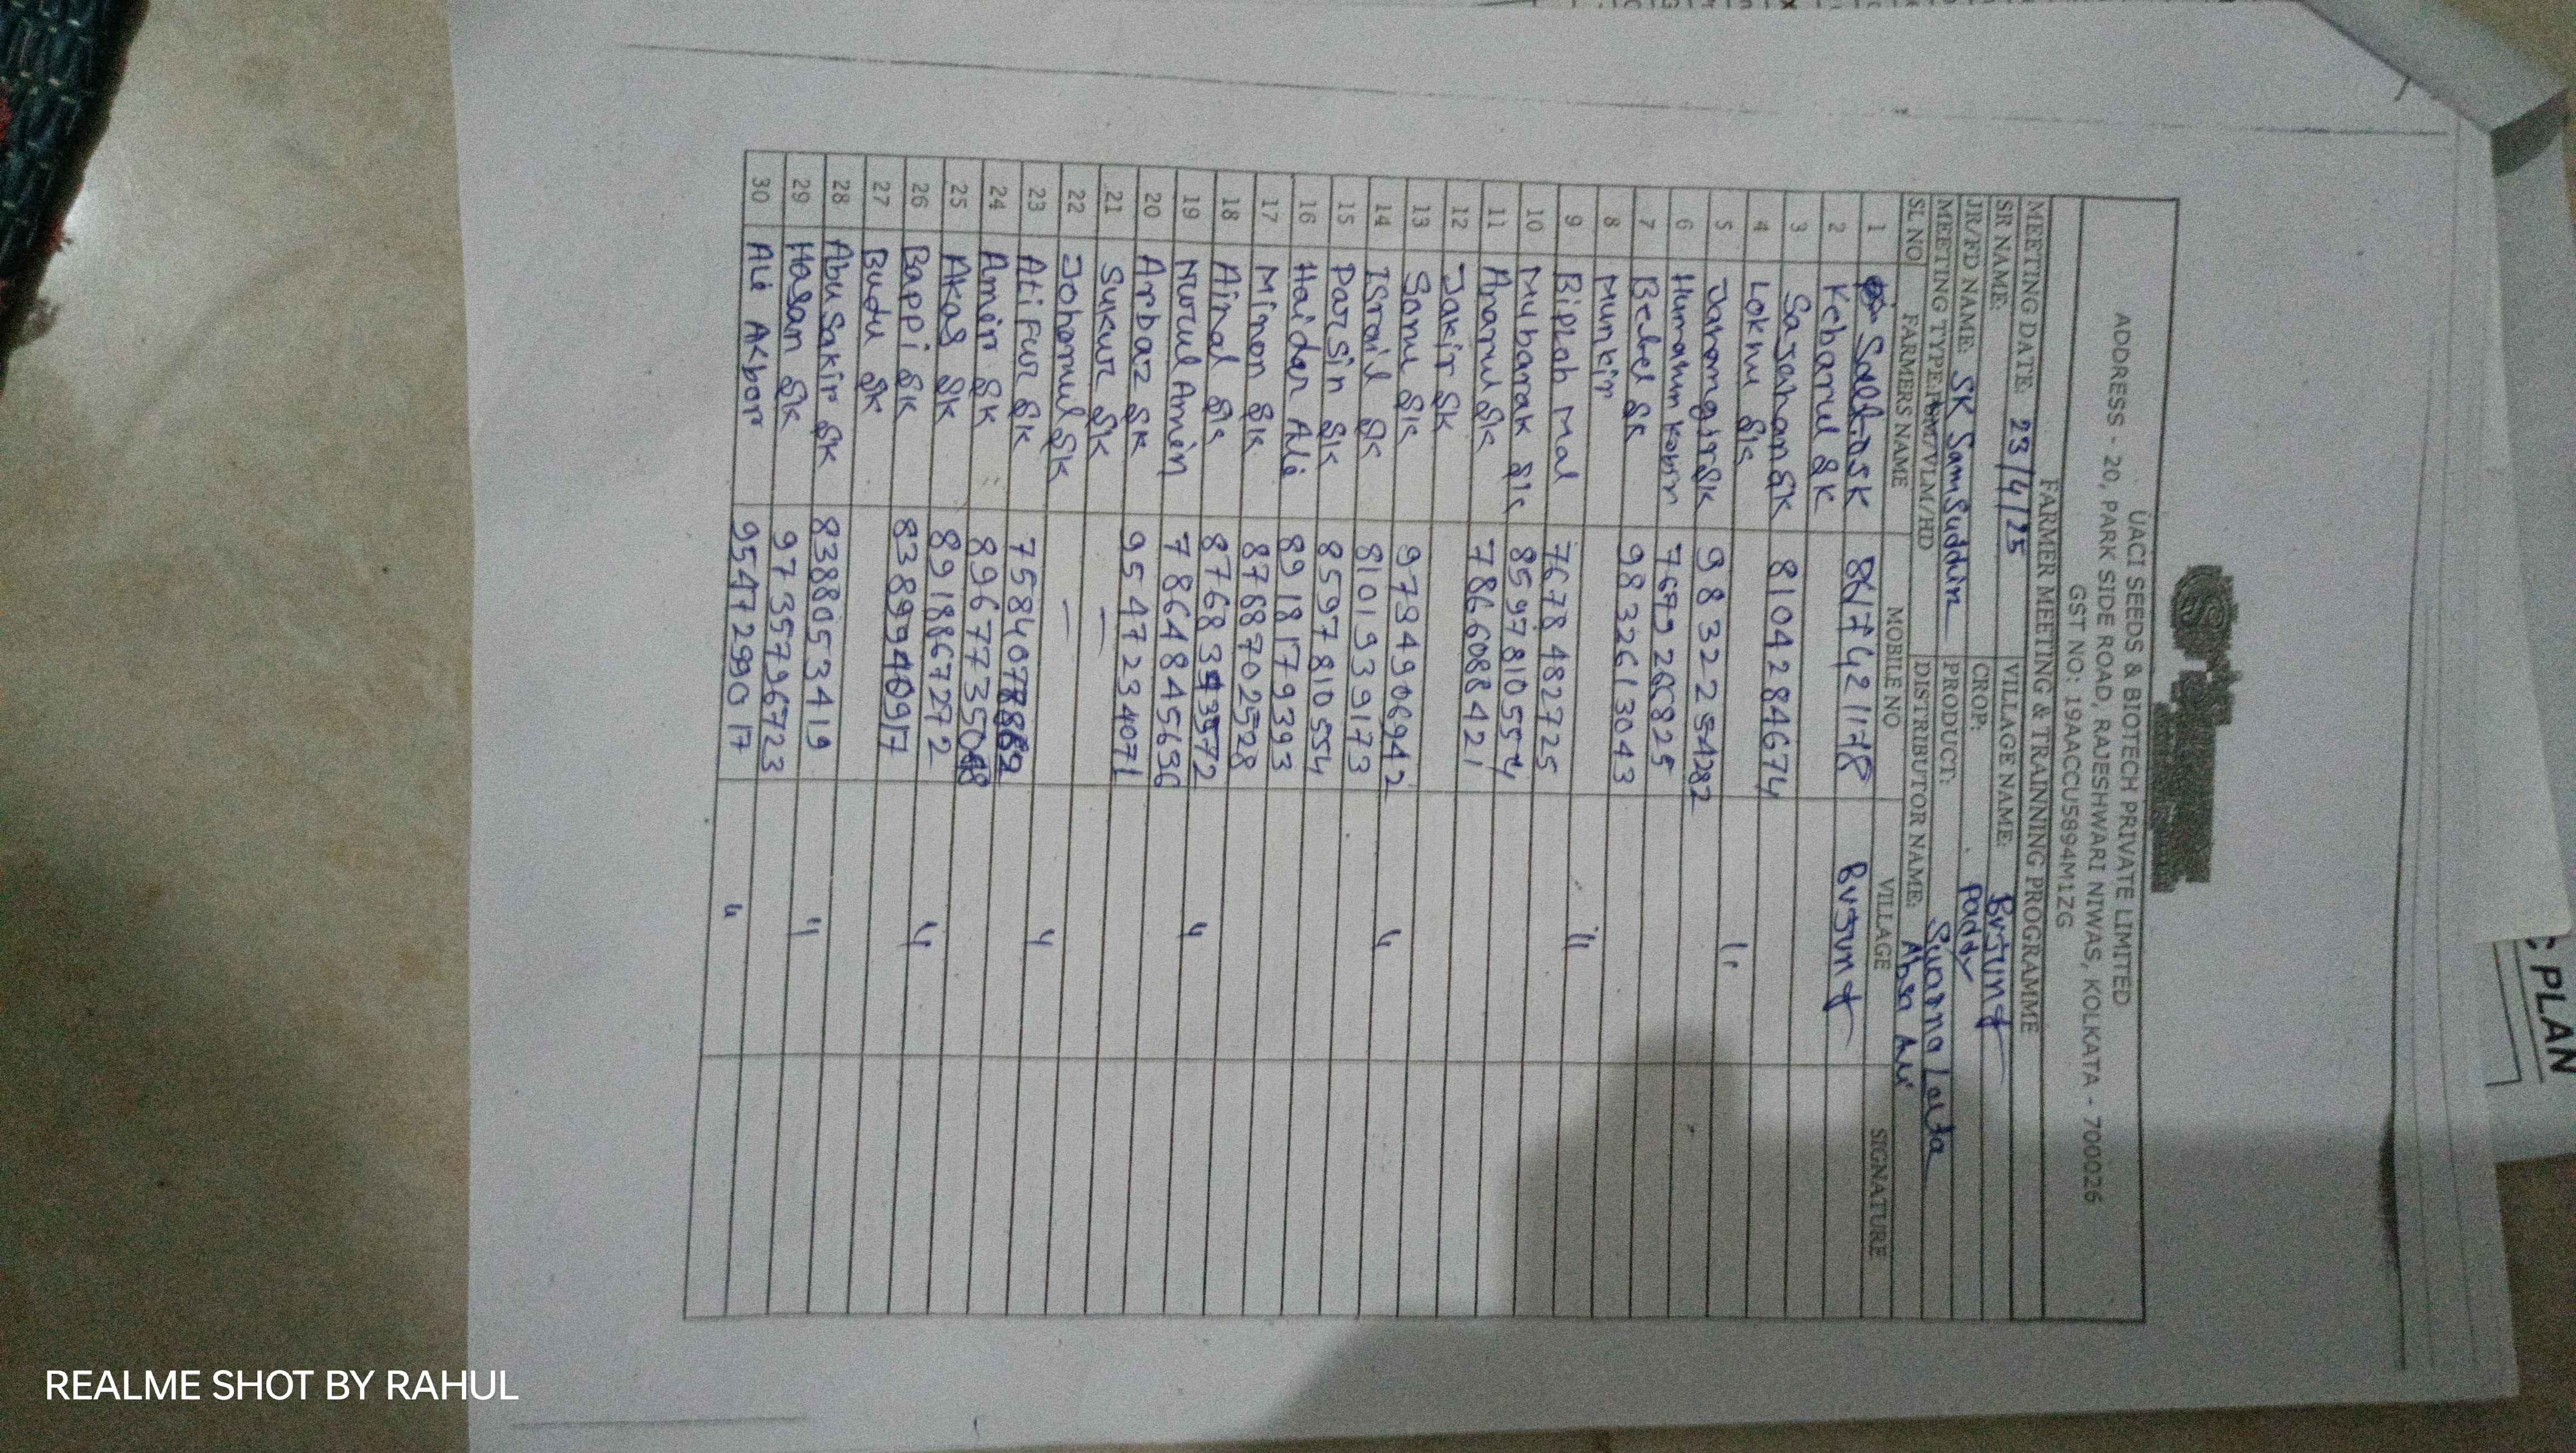 UACI SEEDS & BIOTECH PRIVATE LIMITED
ADDRESS - 20, PARK SIDE ROAD, RAJESHWARI NIWAS, KOLKATA - 700026
GST NO: 19AACCU5894M1ZG
FARMER MEETING & TRAINNING PROGRAMME
MEETING DATE: 23/4/25 VILLAGE NAME:
SR NAME: CROP: Paddy
JR/FD NAME: SK Samsuddin PRODUCT:
MEETING TYPE: /VLM/HD DISTRIBUTOR NAME:
SL NO FARMERS NAME MOBILE NO VILLAGE SIGNATURE
1
2 Kebarul SK
3 Sajahan SK 8104284674
4 Loknu SK
5 Jahangir SK 9832254282
6 Humanun
7 Bebel SK 9832613043
8 Munkir
9 Biplab Mal 7678482725 "
10 Mubarak SK 8597810554
11 Anarul SK 7866088421
12 Jakir SK
13 Sonu SK 9734906942
14 Israil SK 8101939173 "
15 Parsin SK 8597810554
16 Haidar Ali 8918179393
17 Minon SK 8768702528
18 Ainal SK
19 Nurul Amin 7864845636 "
20 Arbaz SK 9547234071
21 Sukur SK —
22 Johorul SK —
23 Atifur SK "
24 Amin SK
25 Akas SK 8918867272
26 Bappi SK 8389940917 "
27 Budu SK
28 Abu Sakir SK 8388053419
29 Hasan SK 9735796723 "
30 Ali Akbor 9547299017 "
C PLAN
REALME SHOT BY RAHUL